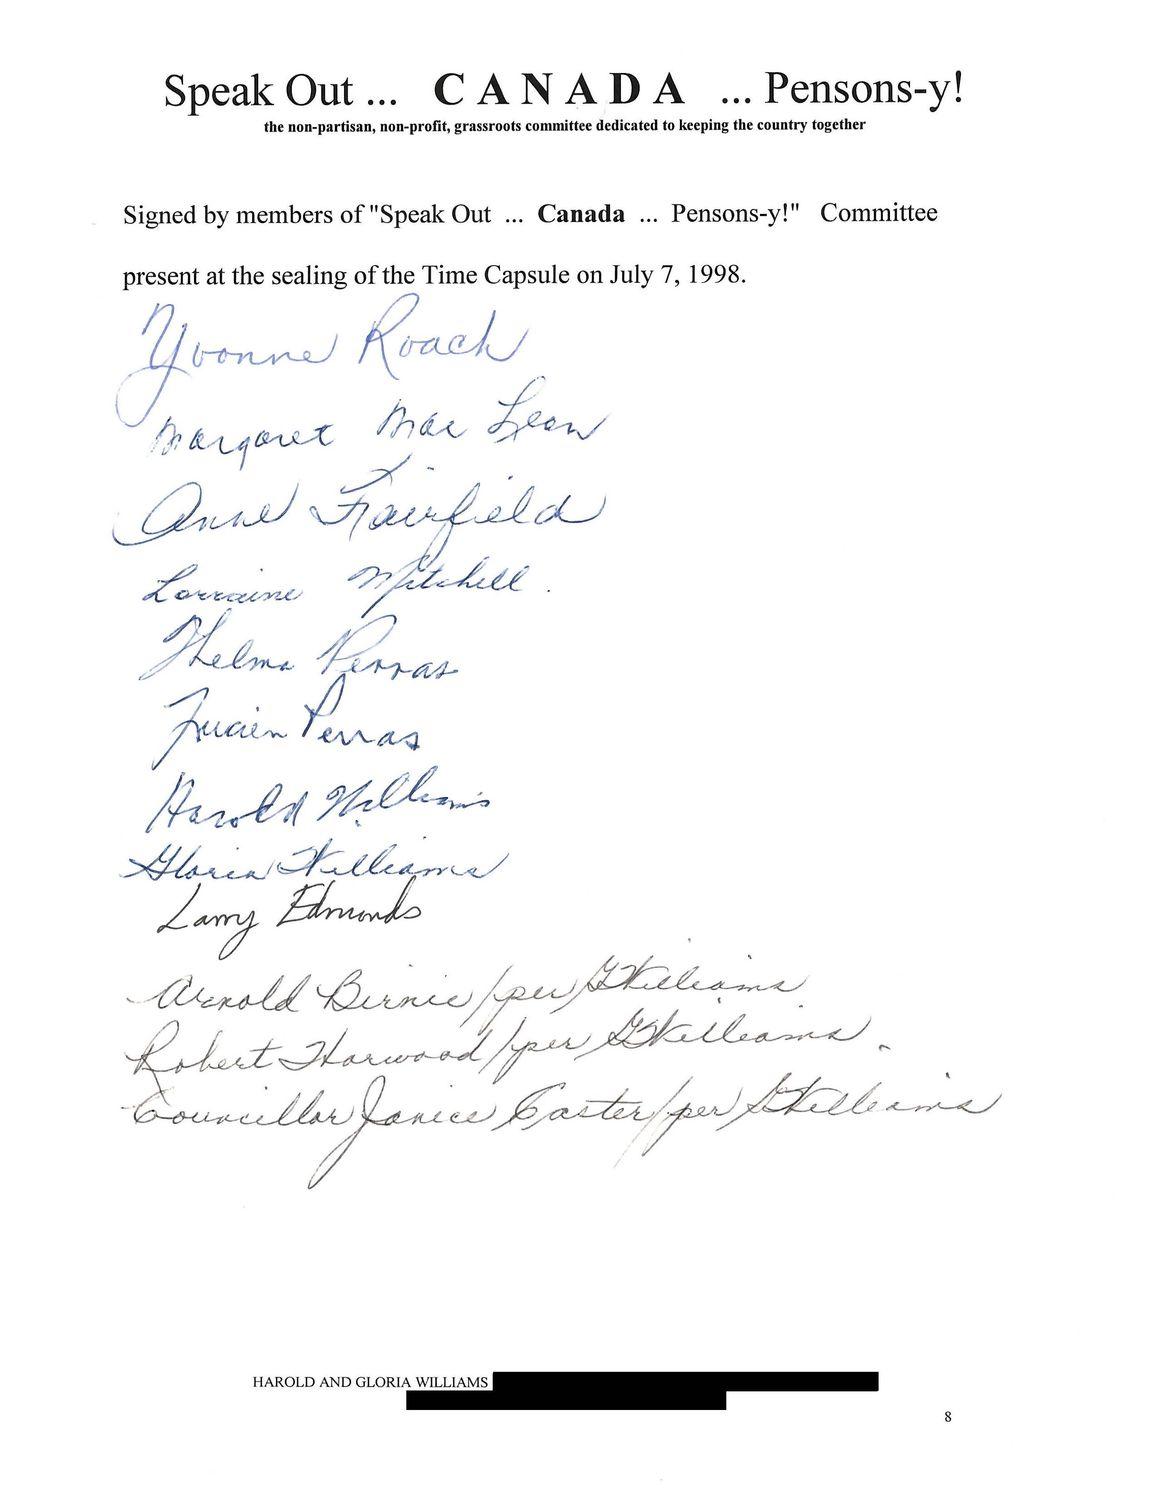 Speak Out ... CANADA ... Pensons-y!
the non-partisan, non-profit, grassroots committee dedicated to keeping the country together
Signed by members of "Speak Out ... Canada ... Pensons-y!" Committee
present at the sealing of the Time Capsule on July 7, 1998.
Yvonne Roach
Margaret MacLean
Anne Fairfield
Lorraine Mitchell.
Thelma Perras
Lucien Perras
Harold Williams
Gloria Williams
Larry Edmonds
Arnold Bernie/per GWilliams
Robert Horwood/per GWilliams.
Councillor Janice Caster/per GWilliams
HAROLD AND GLORIA WILLIAMS
8